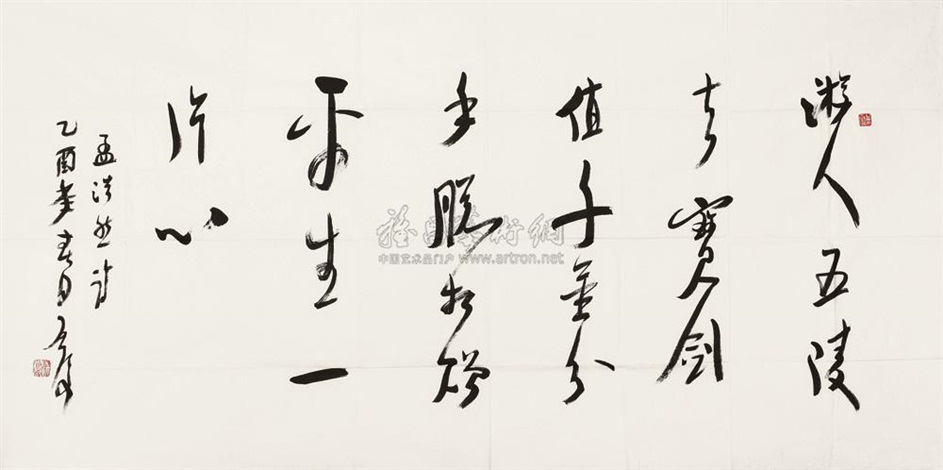 游人五陵
去寶劍
值千金分
手脫相贈
平生一
片心
孟浩然詩
乙酉年春日
雅昌藝術網
中国艺术品门户 www.artron.net